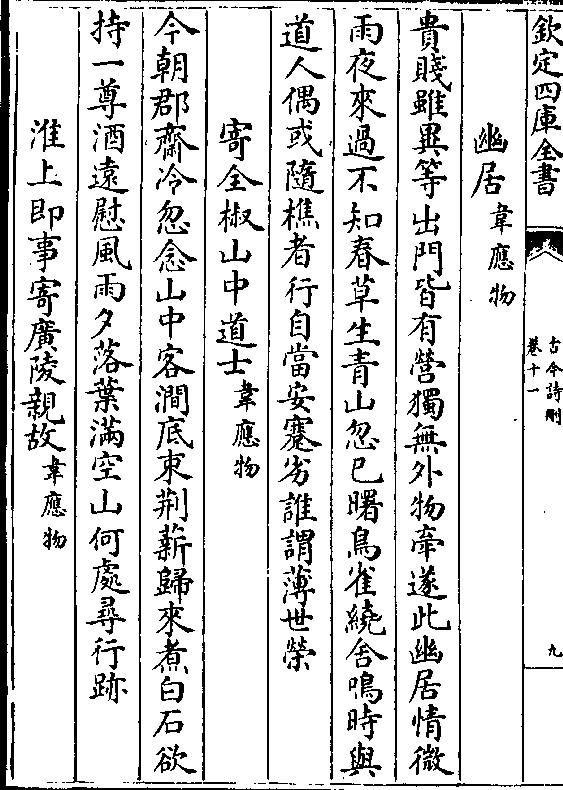 欽定四庫全書
古今詩刪
卷十一
九
幽居韋應物
貴賤雖異等出門皆有營獨無外物牽遂此幽居情微
雨夜來過不知春草生青山忽已曙鳥雀繞舍鳴時與
道人偶或隨樵者行自當安蹇劣誰謂薄世榮
寄全椒山中道士韋應物
今朝郡齋冷忽念山中客澗底束荆薪歸來煮白石欲
持一尊酒遠慰風雨夕落葉滿空山何處尋行跡
淮上即事寄廣陵親故韋應物